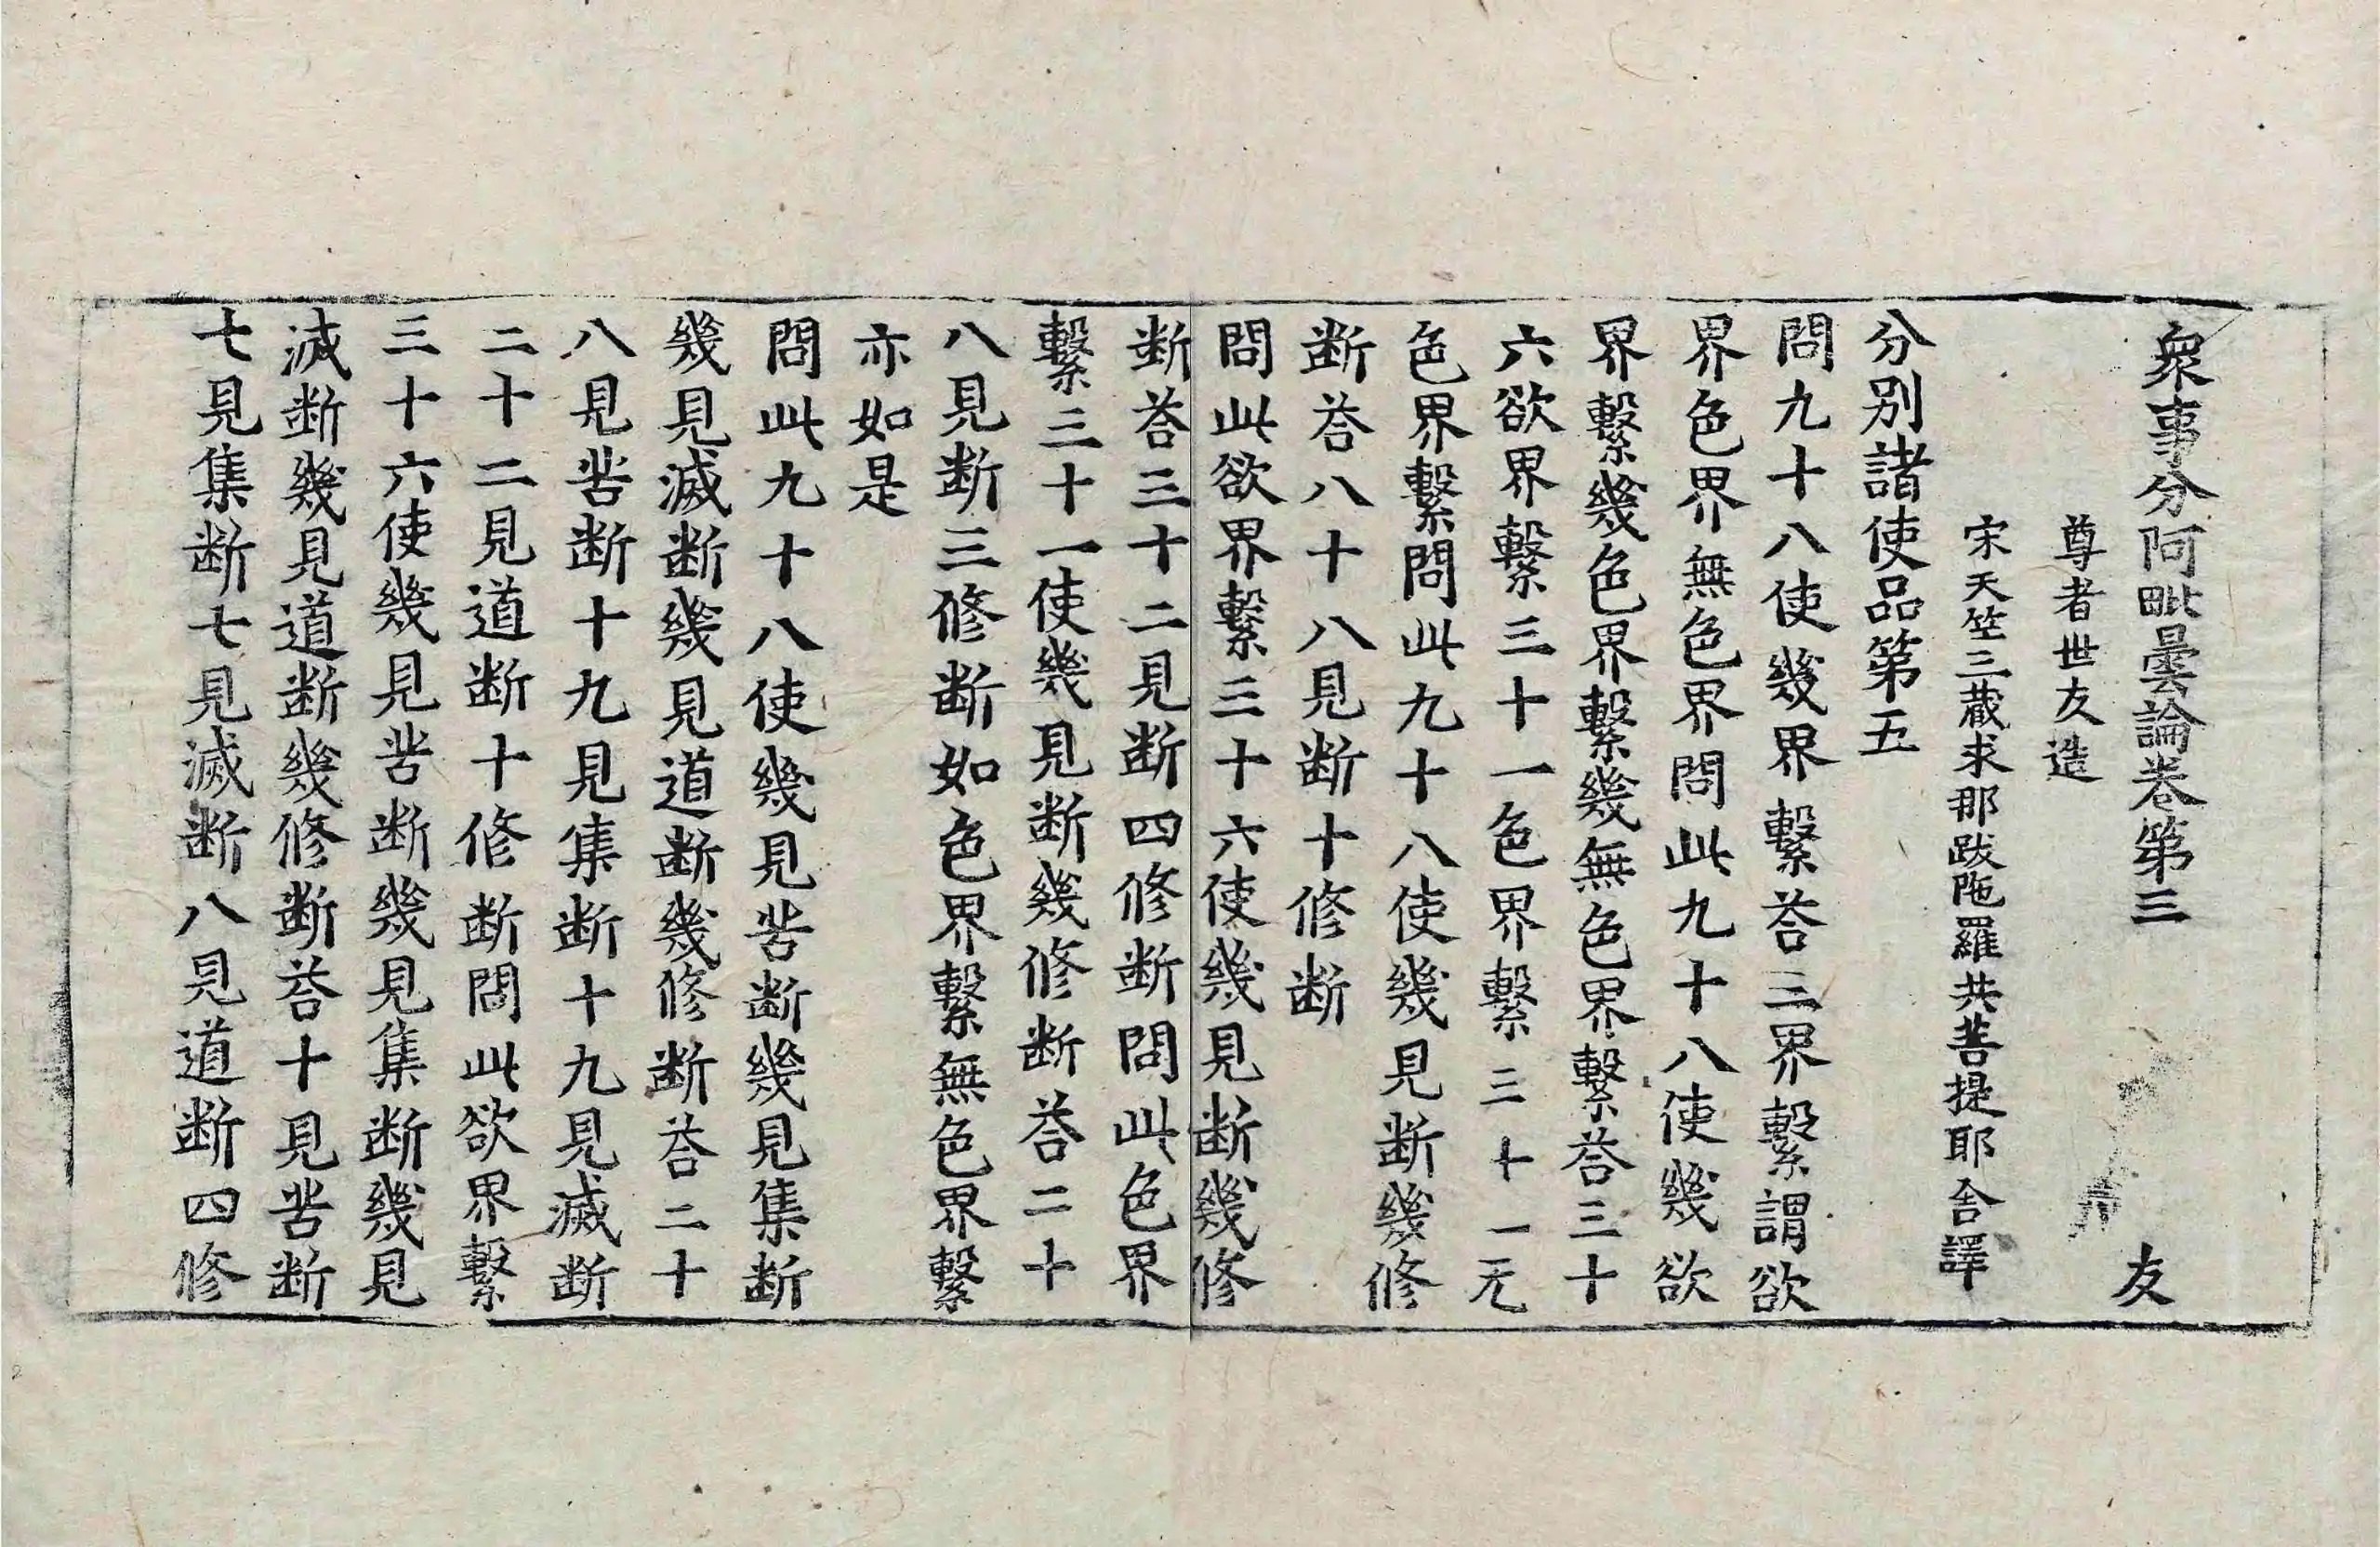 衆事分阿毗曇論卷第三 友
尊者世友造
宋天竺三藏求那跋陁羅共菩提耶舍譯
分別諸使品第五
問九十八使幾界繫荅三界繫謂欲
界色界無色界問此九十八使幾欲
界繫幾色界繫幾無色界繫荅三十
六欲界繫三十一色界繫三十一无
色界繫問此九十八使幾見断幾修
断荅八十八見断十修断
問此欲界繫三十六使幾見断幾修
断荅三十二見断四修断問此色界
繫三十一使幾見断幾修断荅二十
八見断三修断如色界繫無色界繫
亦如是
問此九十八使幾見苦断幾見集断
幾見滅断幾見道断幾修断荅二十
八見苦断十九見集断十九見滅断
二十二見道断十修断問此欲界繫
三十六使幾見苦断幾見集断幾見
滅断幾見道断幾修断荅十見苦断
七見集断七見滅断八見道断四修